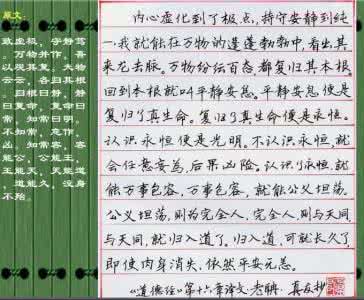 原文:
致虚极，守静笃
。万物并作，吾
以观其复。夫物
云云，各归其根
。归根曰静，静
曰复命，复命曰
常，知常曰明。
不知常，妄作，
凶。知常容，容
能公，公能王，
王能天，天能道
，道能久，没身
不殆。
内心虚化到了极点，持守安静到纯
一，我就能在万物的蓬蓬勃勃中，看出其
来龙去脉。万物纷纭百态，都复归其本根。
回到本根就叫平静安息。平静安息便是
复归了真生命。复归了真生命便是永恒。
认识永恒便是光明。不认识永恒，就
会任意妄为，后果凶险。认识了永恒就
能万事包容，万事包容，就能公义坦荡。
公义坦荡，则为完全人，完全人，则与天同，
与天同，就归入道了，归入道，可就长久了，
即使肉身消失，依然平安无恙。
《道德经》第十六章译文·老聃 真友抄